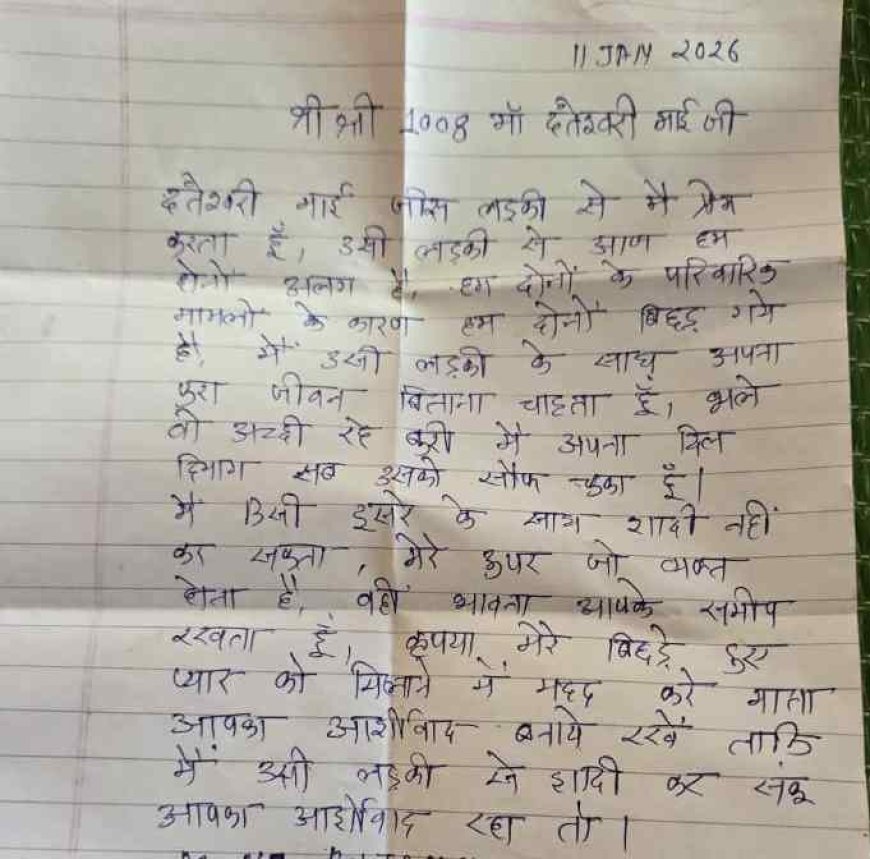 11 JAN 2026
श्री श्री 1008 माँ दंतेश्वरी माई जी
दंतेश्वरी माई जीस लड़की से मै प्रेम
करता हूँ, उसी लड़की से आज हम
दोनों अलग है, हम दोनों के परिवारिक
मामलो के कारण हम दोनों बिछड़ गये
है, मैं उसी लड़की के साथ अपना
पुरा जीवन बिताना चाहता हूँ, भले
वो अच्छी रहे बुरी मै अपना दिल
दिमाग सब उसको सौफ चुका हूँ।
मैं किसी दुसरे के साथ शादी नहीं
कर सकता, मेरे ऊपर जो व्यक्त
होता है, वही भावना आपके समीप
रखता हूँ, कृपया मेरे बिछड़े हुए
प्यार को मिलाने में मदद करे माता
आपका आर्शीवाद बनाये रखें ताकि
मैं उसी लड़की से शादी कर सकू
आपका आर्शीवाद रहा तो।